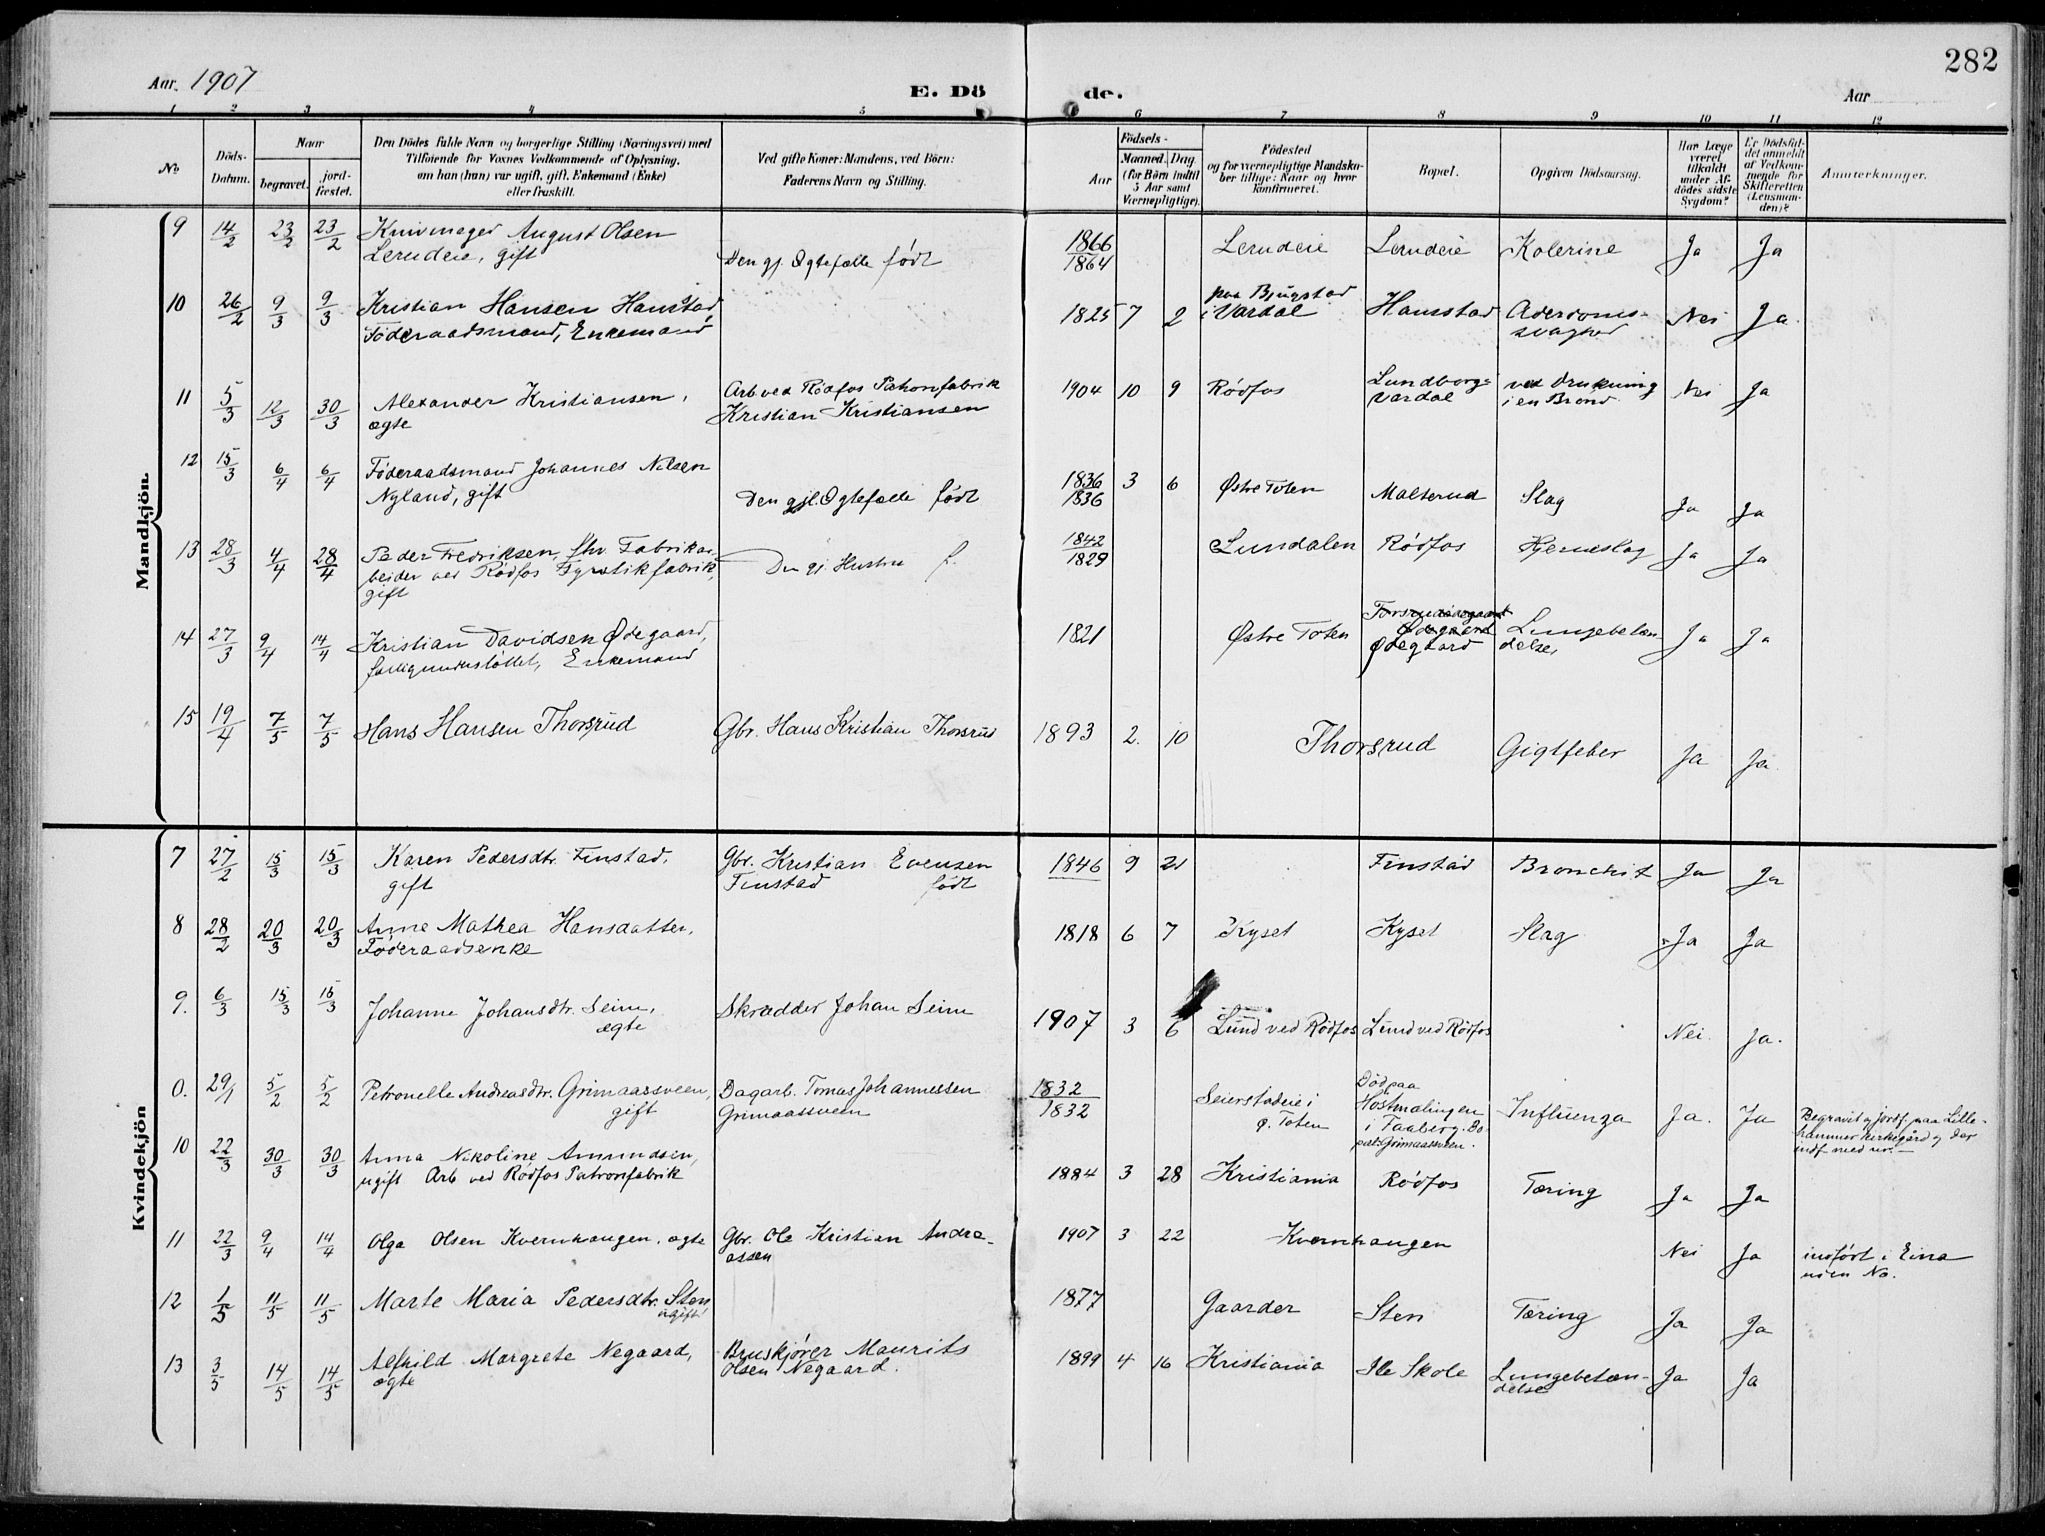 282
Aar. 1907
E. Dö
de.
Aar
1 2 3 4 5 6 7 8 9 10 11 12
No
Döds-
Datum.
Naar
begravet.
jord-
fæstet.
Den Dödes fulde Navn og borgerlige Stilling (Næringsvei) med
Tilföiende for Voxnes Vedkommende af Oplysning,
om han (hun) var ugift, gift, Enkemand (Enke)
eller fraskilt.
Ved gifte Koner: Mandens, ved Börn:
Faderens Navn og Stilling.
Födsels-
Aar
Maaned. Dag
(for Börn indtil
5 Aar samt
Værnepligtige).
Födested
og for værnepligtige Mandska-
ber tillige: Naar og hvor
konfirmeret.
Bopæl.
Opgiven Dödsaarsag.
Har Læge
været
tilkaldt
under Af-
dödes sidste
Sygdom?
Er Dödsfal-
det anmeldt
af Vedkom-
mende for
Skifteretten
(Lensman-
den)?
Anmærkninger.
Mandkjön.
9 14/2 23/2 23/2 Knivmager August Olsen
Lerudeie, gift
Den gj. Ægtefælle født
1866
1864
Lerudeie Lerudeie Kolerine Ja Ja
10 26/2 9/3 9/3 Kristian Hansen Hanstad,
Föderaadsmand, Enkemand
1825 7 2
paa Bjugstad
i Vardal
Hanstad Alderdoms-
svaghed
Nei Ja.
11 5/3 12/3 30/3 Alexander Kristiansen,
ægte
Arb. ved Rødfos Patronfabrik
Kristian Kristiansen
1904 10 9 Rødfos
Lundborge
Vardal
ved Drukning
i en Brønd.
Nei Ja
12 15/3 6/4 6/4 Føderaadsmand Johannes Nilsen
Nyland, gift
Den gjl. Ægtefælle født
1836
1836
3 6 Østre Toten Malterud Slag Ja Ja
13 28/3 4/4 28/4 Peder Fredriksen, fhv. Fabrikar-
beider ved Rødfos Fyrstikfabrik,
gift
Den gj. Hustru f.
1842
1829
Lundalen Rødfos Hjerneslag Ja Ja
14 27/3 9/4 14/4 Kristian Davidsen Ødegaard,
fattigunderstøttet, Enkemand
1821 Østre Toten
Ødegaard
Ødegaard
Lungebetæn-
delse,
Ja Ja
15 19/4 7/5 7/5 Hans Hansen Thorsrud Gbr. Hans Kristian Thorsrud 1893 2. 10 Thorsrud Gigtfeber Ja Ja.
Kvindekjön
7 27/2 15/3 15/3 Karen Pedersdtr. Finstad,
gift
Gbr. Kristian Evensen
Finstad født
1846 9 21 Finstad Bronchit Ja Ja
8 28/2 20/3 20/3 Anne Mathea Hansdatter,
Føderaadsenke
1818 6 7 Kyset Kyset Slag Ja Ja
9. 6/3 15/3 15/3 Johanne Johansdtr. Seim,
ægte
Skrædder Johan Seim
1907 3 6 Lund ved Rødfos Lund ved Rødfos Nei. Ja.
0. 29/1 5/2 5/2 Petronelle Andreasdtr. Grimaassveen,
gift
Dagarb. Tomas Johannessen
Grimaassveen
1832
1832
Seierstadeie i
Ø. Toten
Død paa
Høstmælingen
i Faaberg. Bo-
pæl: Grimaassveen.
Influenza Ja. Ja
Begravet og jordf. paa Lille-
hammer kirkegård og der
indf. med nr. —
10 22/3 30/3 30/3 Anna Nikoline Amundsen,
ugift Arb ved Rødfos Patronfabrik
1884 3 28 Kristiania Rødfos Tæring Ja Ja
11 22/3 9/4 14/4 Olga Olsen Kvernhaugen, ægte
Gbr. Ole Kristian Andre-
assen
1907 3 22 Kvernhaugen Nei Ja
indført i Eina
uden No.
12 1/5 11/5 11/5 Marte Maria Pedersdtr. Sten
ugift
1877 Gaarder Sten Tæring Ja Ja
13 3/5 14/5 14/5 Alfhild Margrete Negaard,
ægte
Bruskjører Maurits
Olsen Negaard.
1899 4 16 Kristiania Ile Skole Lungebetæn-
delse
Ja Ja